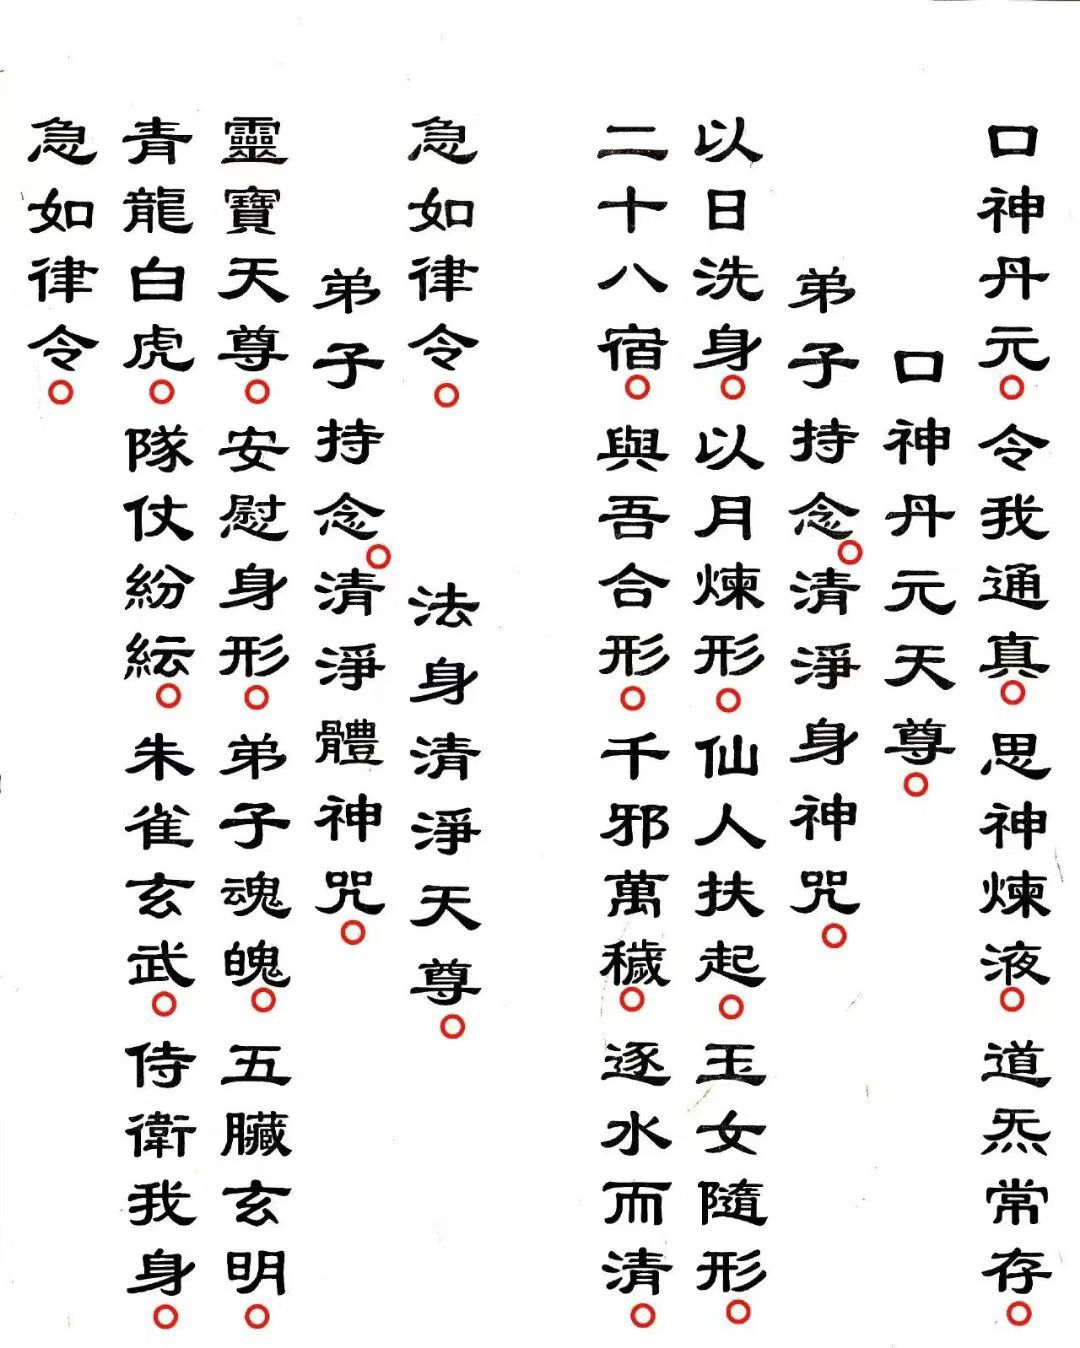 口神丹元○令我通真○思神煉液○道炁常存○
口神丹元天尊○
弟子持念○清淨身神咒○
以日洗身○以月煉形○仙人扶起○玉女隨形○
二十八宿○與吾合形○千邪萬穢○逐水而清○
急如律令○
法身清淨天尊○
弟子持念○清淨體神咒○
靈寶天尊○安慰身形○弟子魂魄○五臟玄明○
青龍白虎○隊仗紛紜○朱雀玄武○侍衛我身○
急如律令○